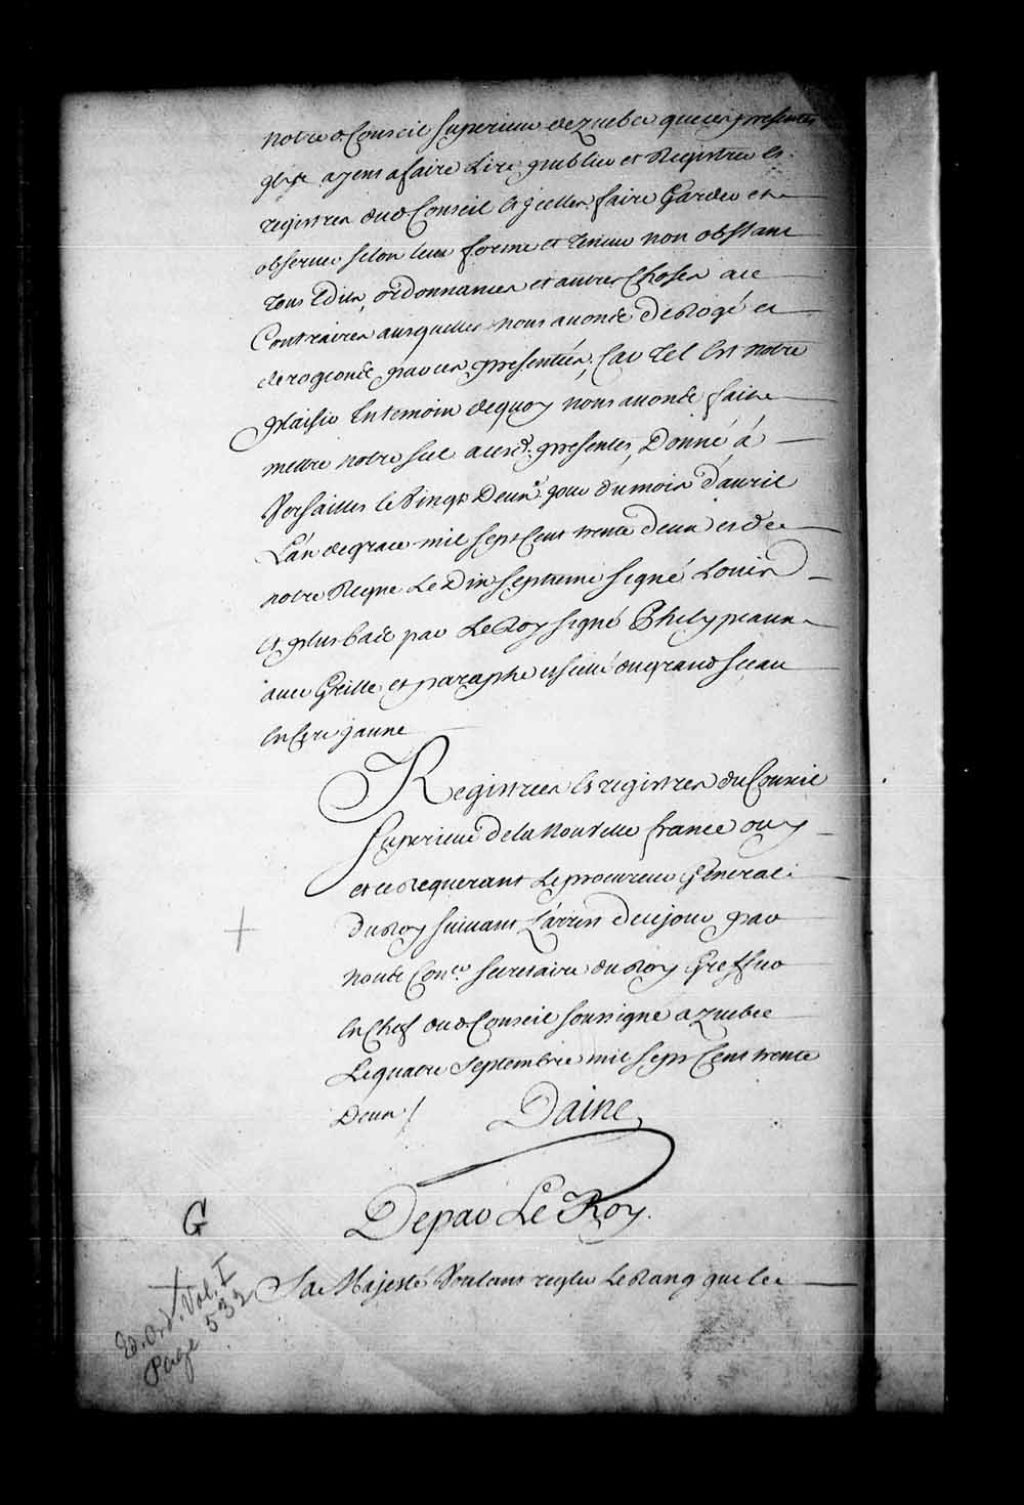 notre d. Conseil superieur de quebec que ces presentes
ayent a faire Lire publier et Registrer es
registres dud Conseil Icelles faire Garder et
observer selon leur forme et teneur non obstant
tous Edits, ordonnances et autres Choses a ce
Contraires ausquelles nous avons derogé et
derogeons par ces presentes, Car tel Est notre
plaisir En temoin dequoy nous avons fait
mettre notre scel a cesd. presentes, Donné á
Versailles le Vingt Deuxe jour du mois d'avril
L'an de grace mil sept Cent trente deux et de
notre Regne Le Dix septieme signé Louis
et plus bas par Le Roy signé Phelypeaux
avec Grille et paraphe et scellé du grand sceau
En Cire jaune
Registrées Es registres du Conseil
Superieur de la Nouvelle france ouy
et ce Requerant Le procureur General
du Roy suivant L'arrest de ce jour par
nous Conser secretaire du Roy Greffier
En Chef dud Conseil soussigné a quebec
Le quatre Septembre mil sept Cent trente
Deux /
Daine
De par Le Roy.
Sa Majesté Voulant regler Le Rang que le
G
Ed. Ord. Vol. I
Page 532